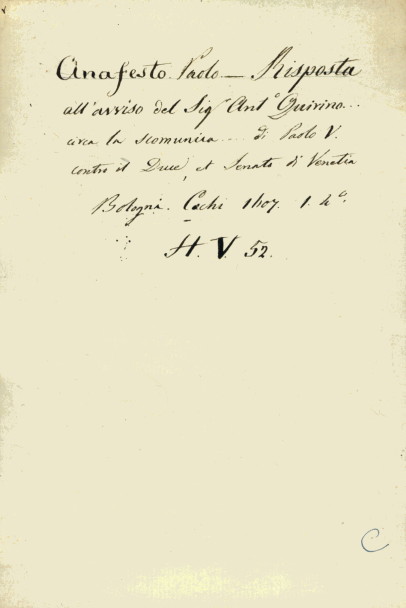 Anafesto Paolo — Risposta
all'avviso del Sigr Anto Quirino...
circa la scomunica ... di Paolo V.
contro il Duce, et Senato di Venetia
Bologna. Cochi 1607. 1. 4o.
H. V. 52.
C